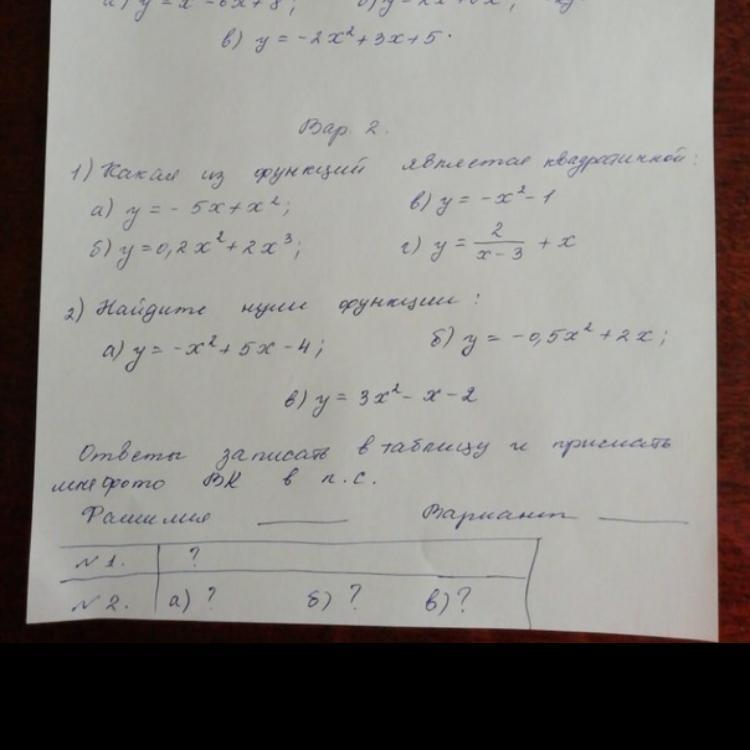 в) y = -2x² + 3x + 5.
Вар 2.
1) Какая из функций является квадратичной:
а) y = - 5x + x²; в) y = -x² - 1
б) y = 0,2x² + 2x³; г) y = 2/(x - 3) + x
2) Найдите нули функции:
а) y = -x² + 5x - 4; б) y = -0,5x² + 2x;
в) y = 3x² - x - 2
Ответы записать в таблицу и прислать
мне фото ВК в л.с.
Фамилия ______ Вариант ______
N 1. ?
N 2. а) ? б) ? в) ?